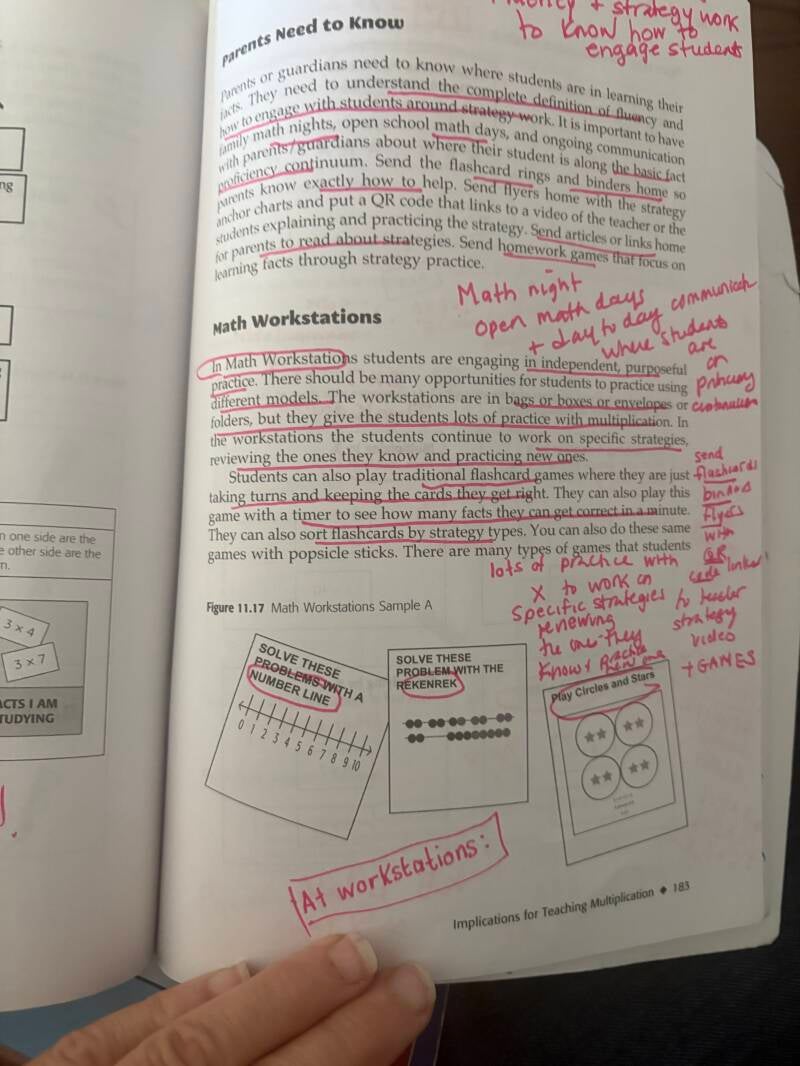 + strategy work
to know how to
engage students
Parents Need to Know
Parents or guardians need to know where students are in learning their
facts. They need to understand the complete definition of fluency and
how to engage with students around strategy work. It is important to have
family math nights, open school math days, and ongoing communication
with parents/guardians about where their student is along the basic fact
proficiency continuum. Send the flashcard rings and binders home so
parents know exactly how to help. Send flyers home with the strategy
anchor charts and put a QR code that links to a video of the teacher or the
students explaining and practicing the strategy. Send articles or links home
for parents to read about strategies. Send homework games that focus on
learning facts through strategy practice.
Math night
open math days
+ day to day communicate
where students
are
on
Math Workstations
In Math Workstations students are engaging in independent, purposeful
practice. There should be many opportunities for students to practice using
different models. The workstations are in bags or boxes or envelopes or
folders, but they give the students lots of practice with multiplication. In
the workstations the students continue to work on specific strategies,
reviewing the ones they know and practicing new ones.
Students can also play traditional flashcard games where they are just
taking turns and keeping the cards they get right. They can also play this
game with a timer to see how many facts they can get correct in a minute.
They can also sort flashcards by strategy types. You can also do these same
games with popsicle sticks. There are many types of games that students
send
flashcards
flyers
with
QR
code linked
to teacher
strategy
video
+ GAMES
lots of practice with
X to work on
specific strategies
the one they
know +
Figure 11.17 Math Workstations Sample A
SOLVE THESE
PROBLEMS WITH A
NUMBER LINE
0 1 2 3 4 5 6 7 8 9 10
SOLVE THESE
PROBLEM WITH THE
REKENREK
Play Circles and Stars
At workstations:
Implications for Teaching Multiplication ◆ 183
ng
n one side are the
e other side are the
n.
3 x 4
3 x 7
ACTS I AM
TUDYING